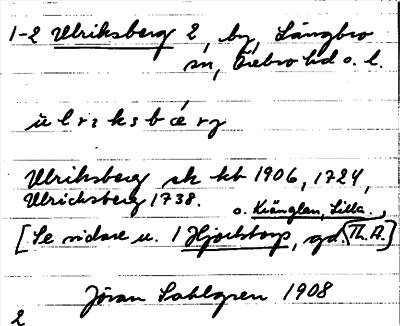 1-2 Ulriksberg 2, by, Längbro
sn, Örebro hd o. l.
ulriksbærg
Ulriksberg sk kb 1906, 1724,
Ulrichsberg 1738.
o. Kränglan, Lilla.
[Se vidare u. 1 Hjortstorp, gd. Th. A.]
Jöran Sahlgren 1908
2